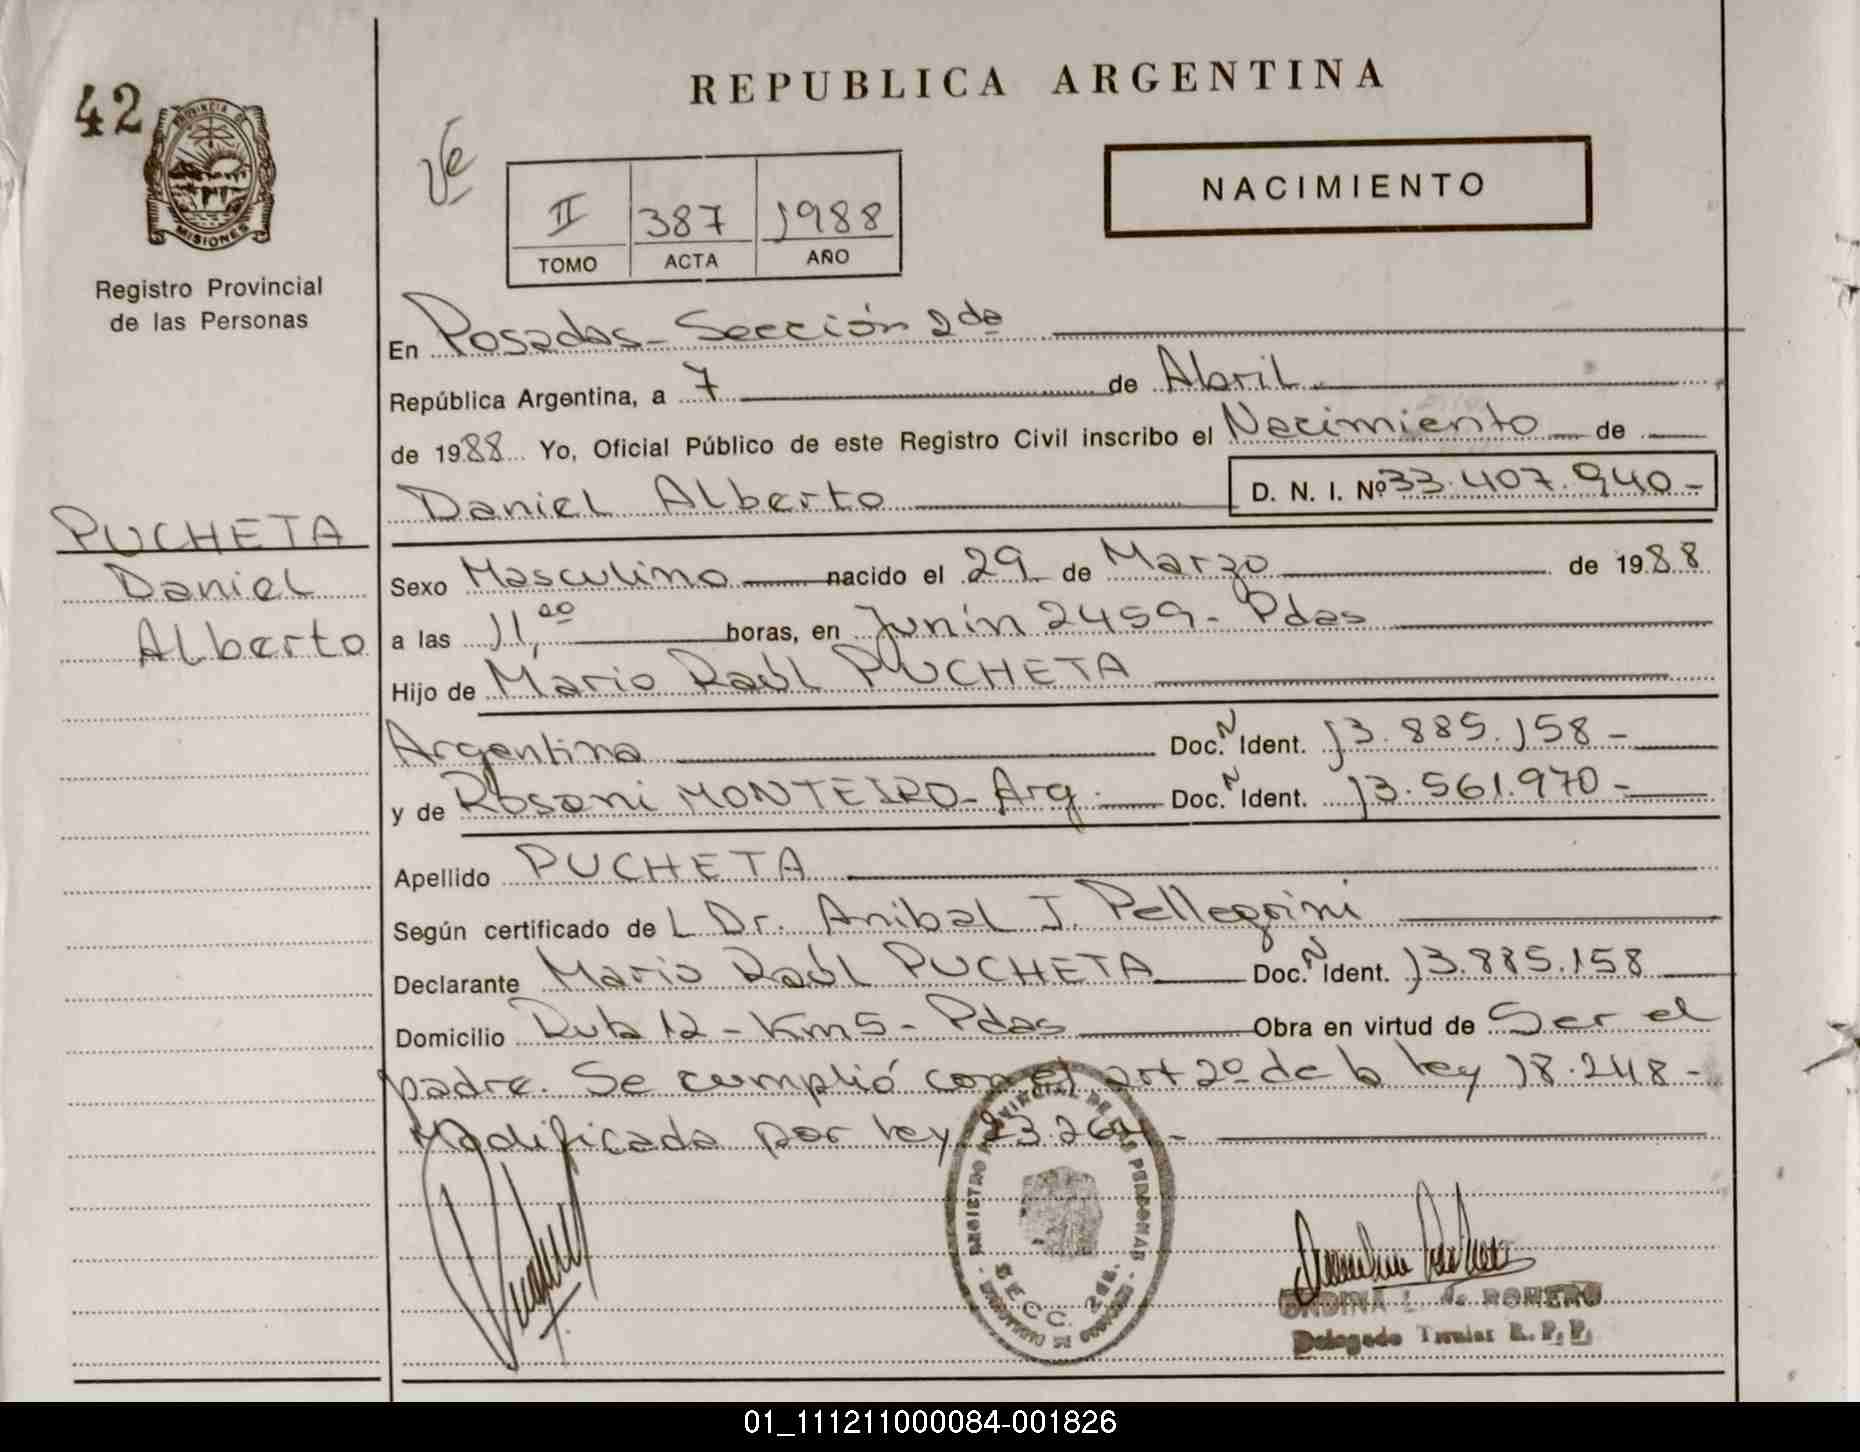 REPUBLICA ARGENTINA
42
PROVINCIA DE
MISIONES
Registro Provincial
de las Personas
Ve
II 387 1988
TOMO ACTA AÑO
NACIMIENTO
En Posadas - Sección 2da
República Argentina, a 7 de Abril
de 1988 Yo, Oficial Público de este Registro Civil inscribo el Nacimiento de
Daniel Alberto D. N. I. Nº 33.407.940-
PUCHETA
Daniel
Alberto
Sexo Masculino nacido el 29 de Marzo de 1988
a las 11,00 horas, en Junín 2459 - Pdas
Hijo de Mario Raúl PUCHETA
Argentino Doc. N Ident. 13.885.158-
y de Rosani MONTEIRO - Arg. Doc. N Ident. 13.561.970-
Apellido PUCHETA
Según certificado de L Dr. Anibal J. Pellegrini
Declarante Mario Raúl PUCHETA Doc. N Ident. 13.885.158
Domicilio Ruta 12 - Km 5 - Pdas Obra en virtud de Ser el
padre. Se cumplió con el art 2º de la ley 18.248-
Modificada por ley 23.264-
REGISTRO PROVINCIAL DE LAS PERSONAS
SECC. 2da.
ONDINA L. de ROMERO
Delegado Titular R. P. P.
01_111211000084-001826